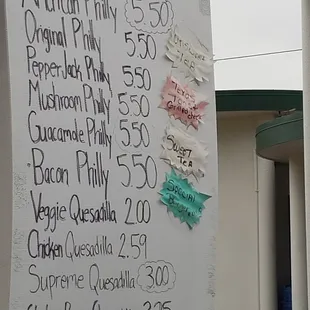 American Philly 5.50
Original Philly 5.50
PepperJack Philly 5.50
Mushroom Philly 5.50
Guacamole Philly 5.50
Bacon Philly 5.50
Veggie Quesadilla 2.00
Chicken Quesadilla 2.59
Supreme Quesadilla 3.00
3.25
Sweet
Tea
Special